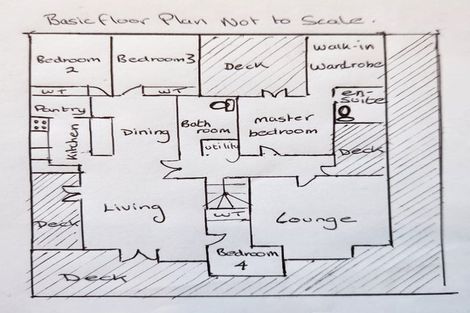 Basic Floor Plan Not to Scale.
Bedroom
2
Bedroom 3
Deck
Walk-in
Wardrobe
WT
WT
Pantry
Kitchen
Dining
Bath
room
utility
master
bedroom
en-
suite
Deck
Deck
Living
WT
Lounge
Bedroom
4
Deck